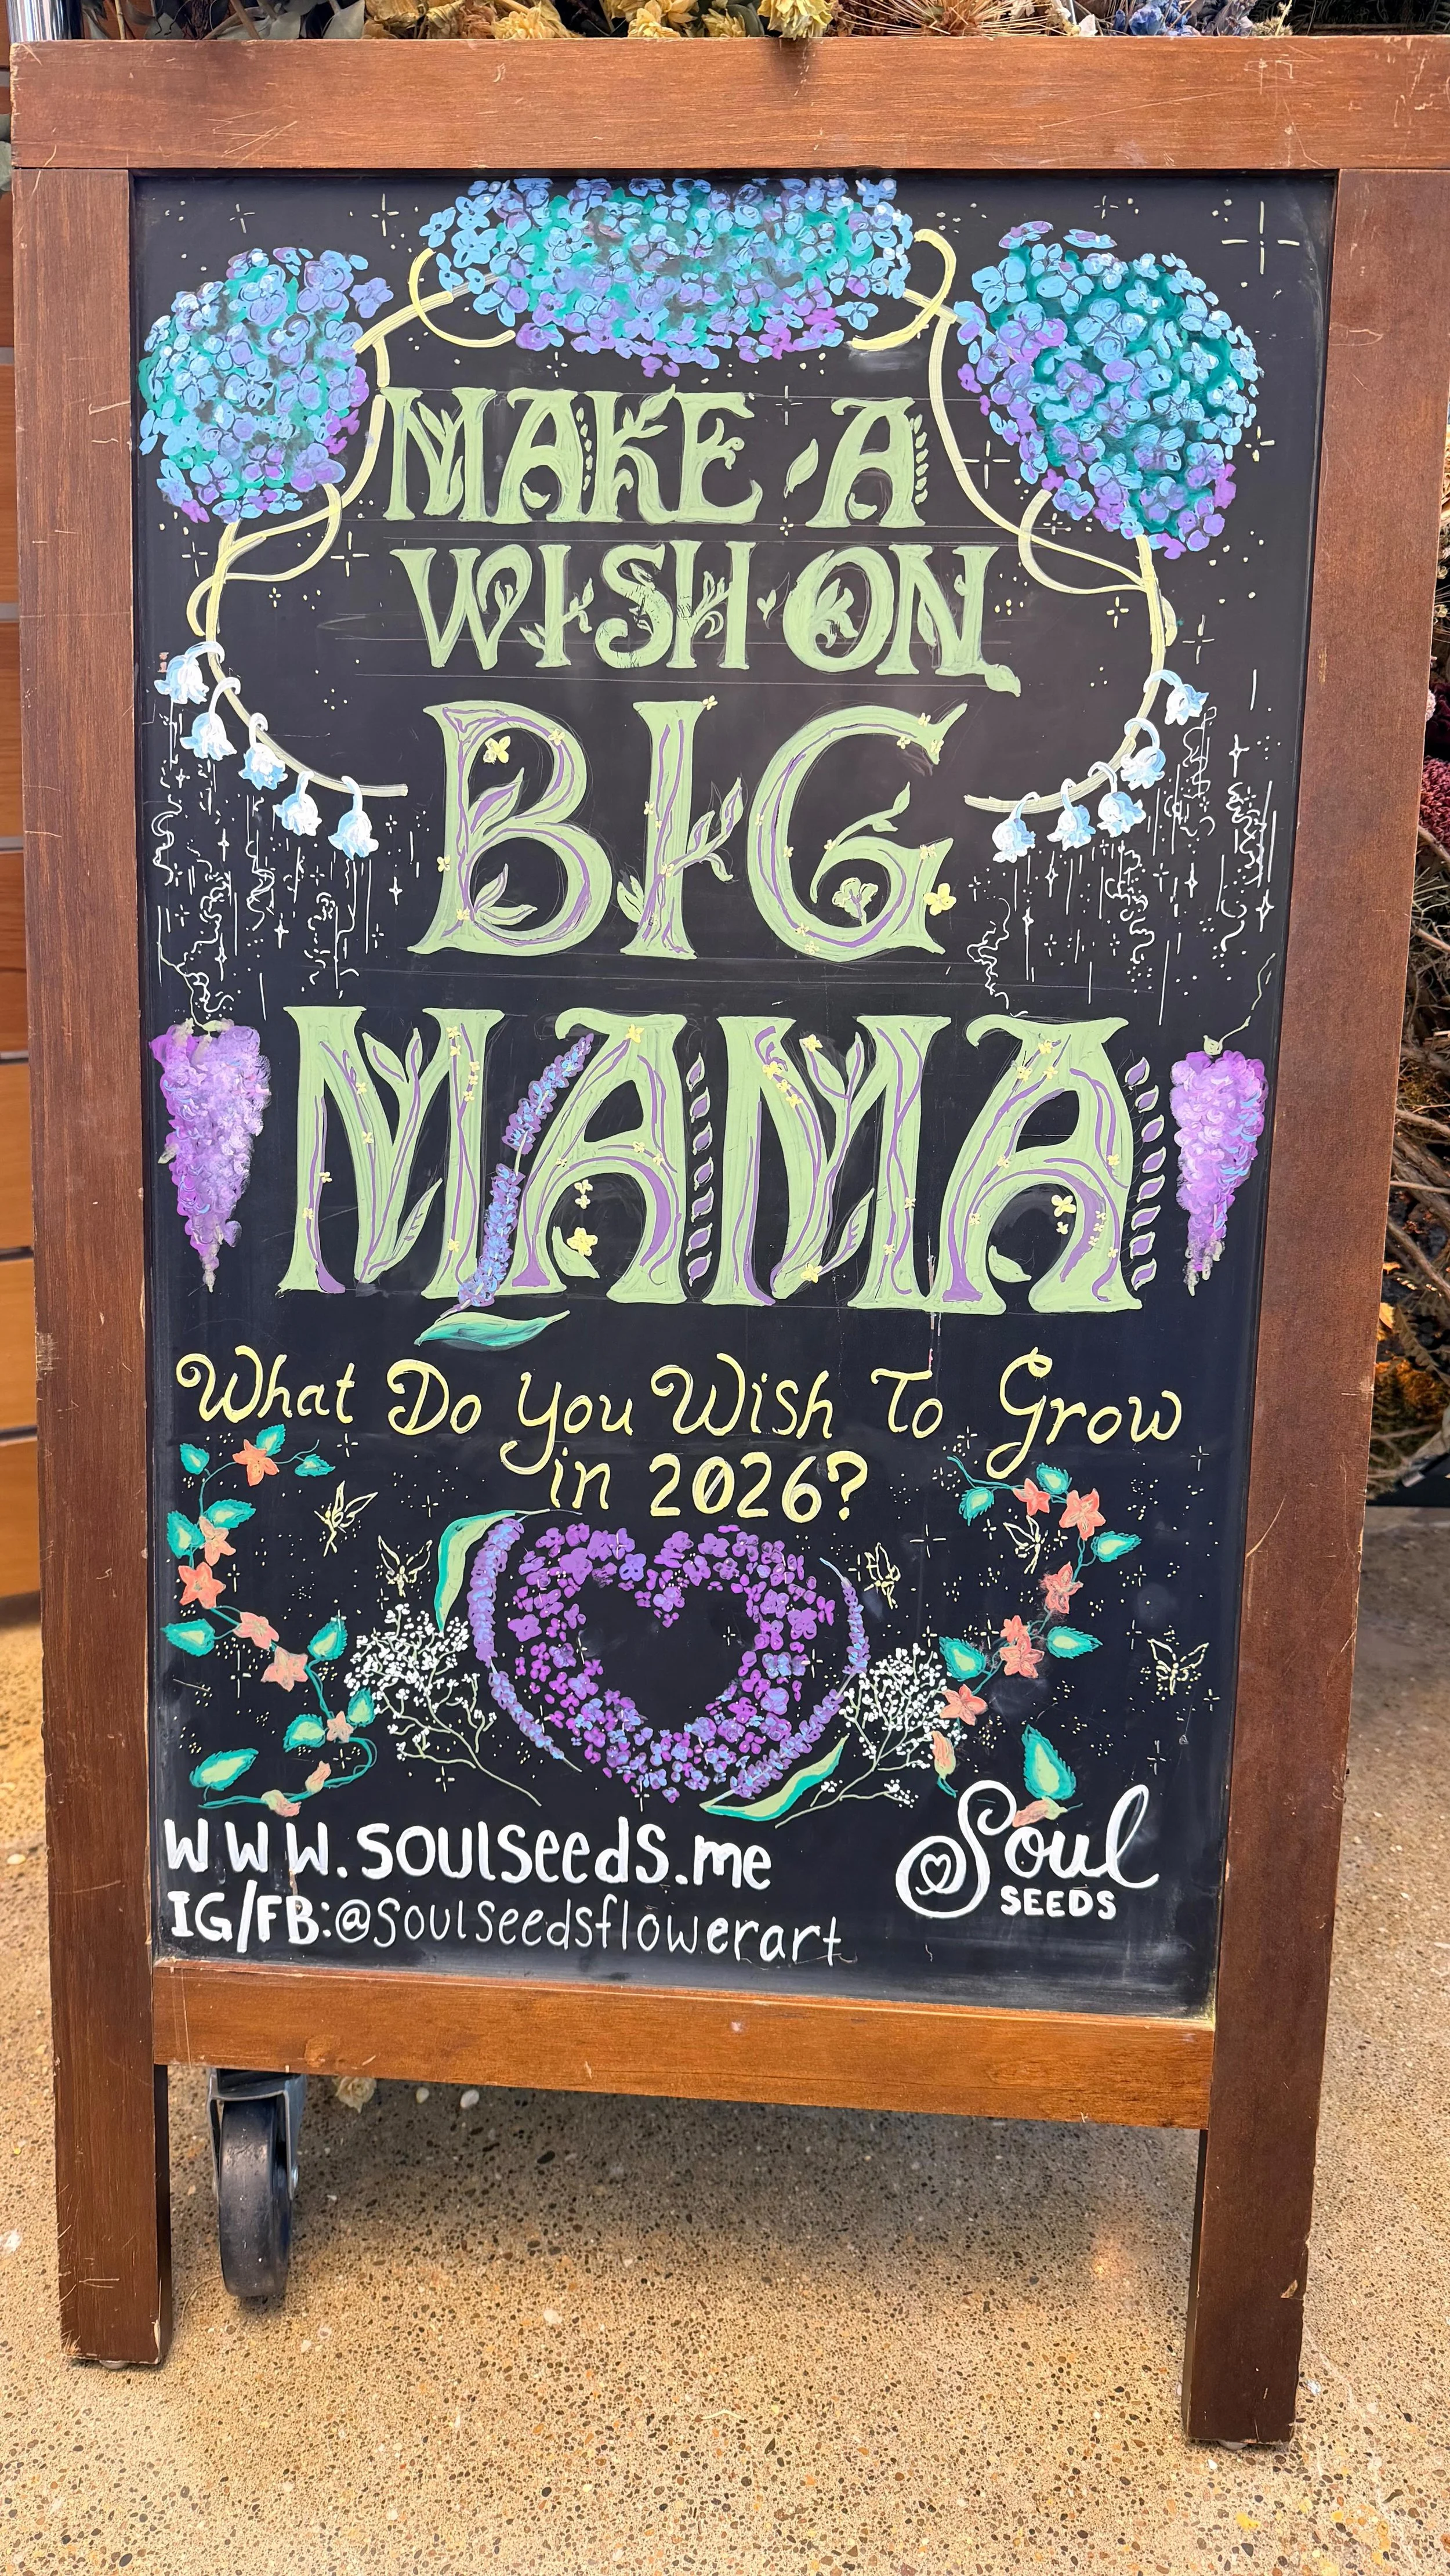 MAKE · A
WISH · ON
BIG
MAMA
What Do You Wish To Grow
in 2026?
www.soulseeds.me
IG/FB:@soulseedsflowerart
Soul
SEEDS